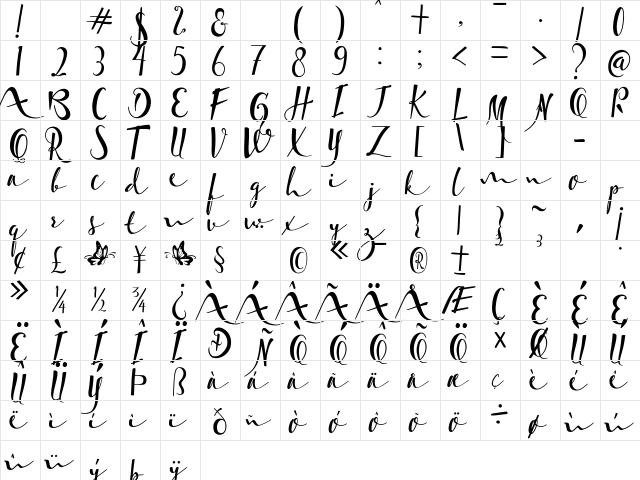 ! # $ & ( ) † , – . / 0
1 2 3 4 5 6 7 8 9 : ; < = > ? @
A B C D E F G H I J K L M N O P
Q R S T U V W X Y Z [ \ ] -
a b c d e f g h i j k l m n o p
q r s t u v w x y z { | } ~ ¡
¢ £ ¥ § © « ® †
» ¼ ½ ¾ ¿ À Á Â Ã Ä Å Æ Ç È É Ê
Ë Ì Í Î Ï Ð Ñ Ò Ó Ô Õ Ö × Ø Ù Ú
Û Ü Ý Þ ß à á â ã ä å æ ç è é ê
ë ì í î ï ð ñ ò ó ô õ ö ÷ ø ù ú
û ü ý þ ÿ